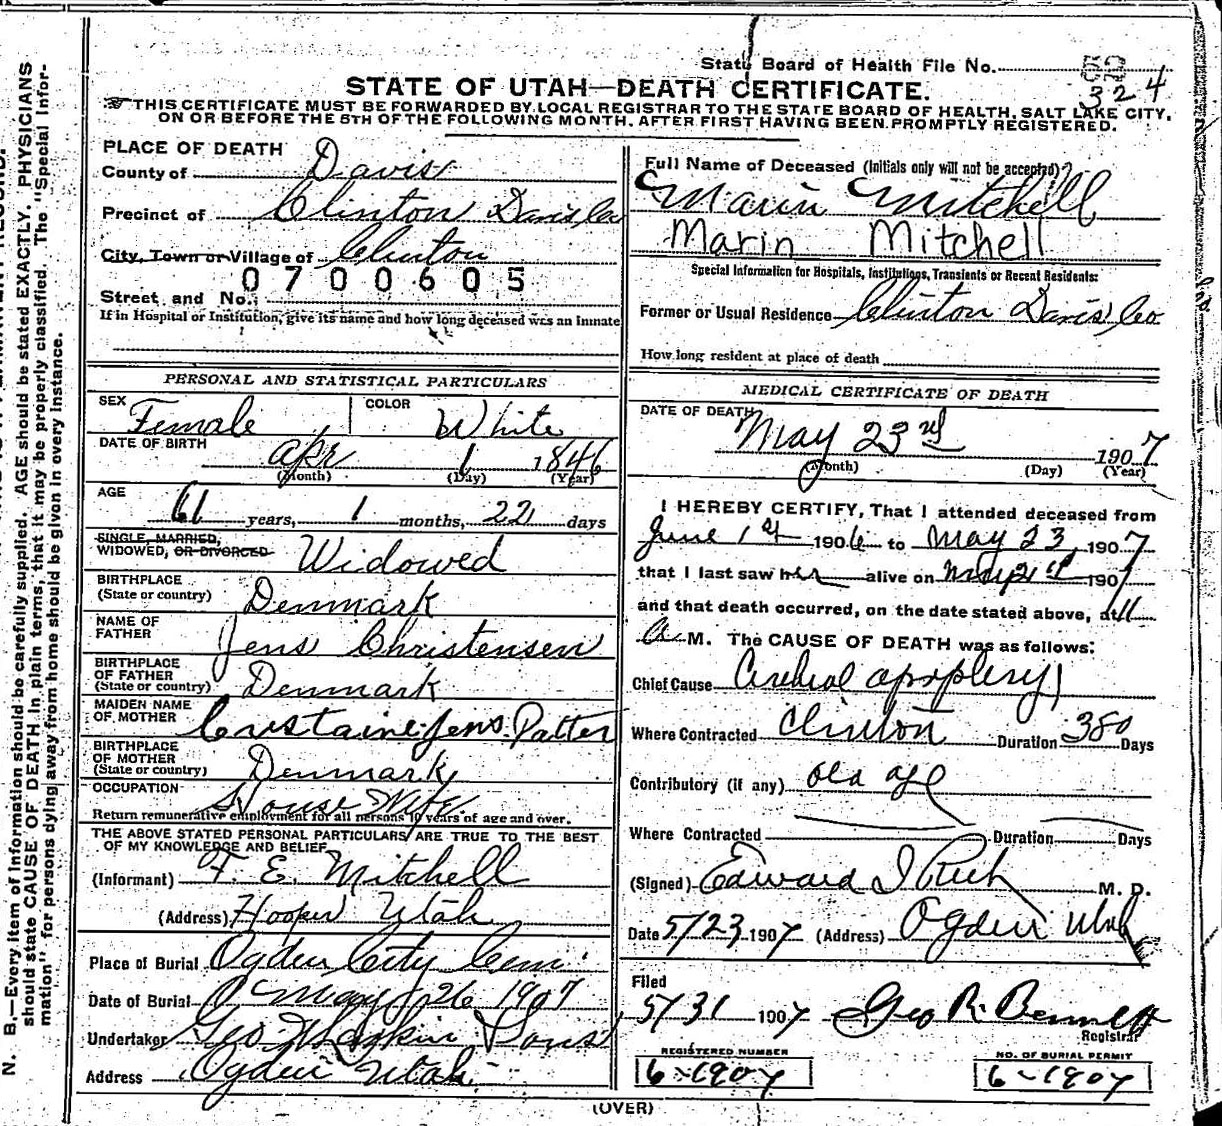 State Board of Health File No.
324
STATE OF UTAH—DEATH CERTIFICATE.
THIS CERTIFICATE MUST BE FORWARDED BY LOCAL REGISTRAR TO THE STATE BOARD OF HEALTH, SALT LAKE CITY,
ON OR BEFORE THE 5TH OF THE FOLLOWING MONTH, AFTER FIRST HAVING BEEN PROMPTLY REGISTERED.
PLACE OF DEATH
County of Davis
Precinct of Clinton Davis Co
City, Town or Village of Clinton
0700605
Street and No.
If in Hospital or Institution, give its name and how long deceased was an inmate
PERSONAL AND STATISTICAL PARTICULARS
SEX Female COLOR White
DATE OF BIRTH Apr 1 1846
(Month) (Day) (Year)
AGE
61 years, 1 months, 22 days
SINGLE, MARRIED,
WIDOWED, OR DIVORCED Widowed
BIRTHPLACE
(State or country) Denmark
NAME OF
FATHER Jens Christensen
BIRTHPLACE
OF FATHER
(State or country) Denmark
MAIDEN NAME
OF MOTHER Jens
BIRTHPLACE
OF MOTHER
(State or country) Denmark
OCCUPATION House Wife
Return remunerative employment for all persons 10 years of age and over.
THE ABOVE STATED PERSONAL PARTICULARS ARE TRUE TO THE BEST
OF MY KNOWLEDGE AND BELIEF
(Informant) F. E. Mitchell
(Address) Hooper Utah
Place of Burial Ogden City Cem.
Date of Burial May 26 1907
Undertaker Geo Sons
Address Ogden Utah
Full Name of Deceased (Initials only will not be accepted)
Marin Mitchell
Marin Mitchell
Special Information for Hospitals, Institutions, Transients or Recent Residents:
Former or Usual Residence Clinton Davis Co
How long resident at place of death
MEDICAL CERTIFICATE OF DEATH
DATE OF DEATH
May 23rd 1907
(Month) (Day) (Year)
I HEREBY CERTIFY, That I attended deceased from
June 1st 1906 to May 23, 1907
that I last saw her alive on May 21st 1907
and that death occurred, on the date stated above, at 11
a M. The CAUSE OF DEATH was as follows:
Chief Cause Cerebral apoplexy
Where Contracted Clinton Duration 380 Days
Contributory (if any) old age
Where Contracted Duration Days
(Signed) Edward I Rich M. D.
Date 5/23 1907 (Address) Ogden Utah
Filed
5/31 1907 Geo R. Bennett
Registrar
REGISTERED NUMBER
6-1907
NO. OF BURIAL PERMIT
6-1907
(OVER)
N. B.—Every item of information should be carefully supplied. AGE should be stated EXACTLY. PHYSICIANS
should state CAUSE OF DEATH in plain terms, that it may be properly classified. The "Special Infor-
mation" for persons dying away from home should be given in every instance.